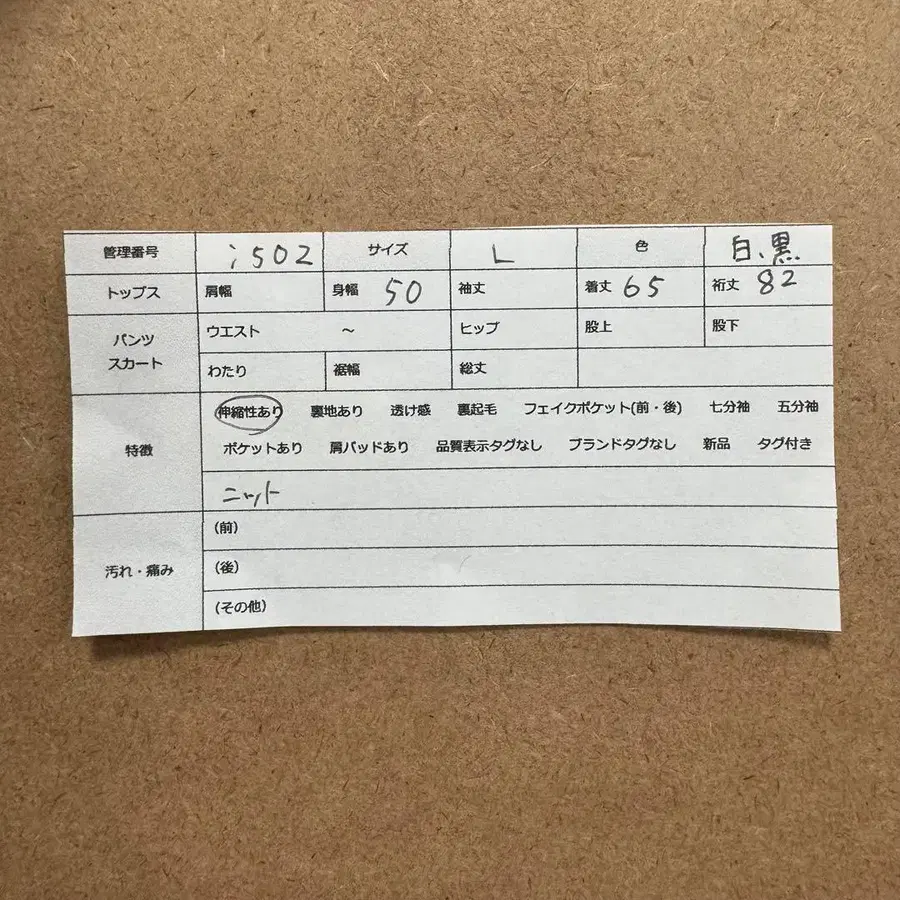 管理番号 i502 サイズ L 色 白、黒
トップス 肩幅 身幅 50 袖丈 着丈 65 裄丈 82
パンツ スカート ウエスト ～ ヒップ 股上 股下
わたり 裾幅 総丈
特徴 伸縮性あり 裏地あり 透け感 裏起毛 フェイクポケット(前・後) 七分袖 五分袖
ポケットあり 肩パッドあり 品質表示タグなし ブランドタグなし 新品 タグ付き
ニット
汚れ・痛み (前)
(後)
(その他)